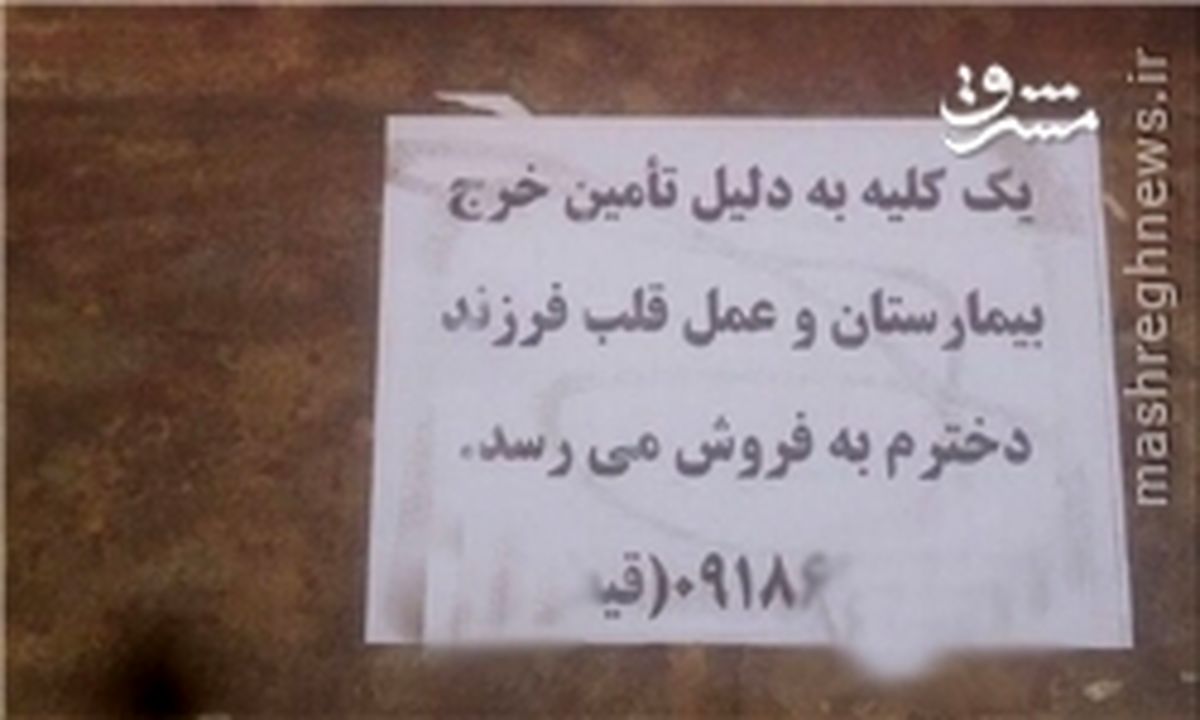 مشرق
mashreghnews.ir
یک کلیه به دلیل تأمین خرج
بیمارستان و عمل قلب فرزند
دخترم به فروش می رسد.
۰۹۱۸۶